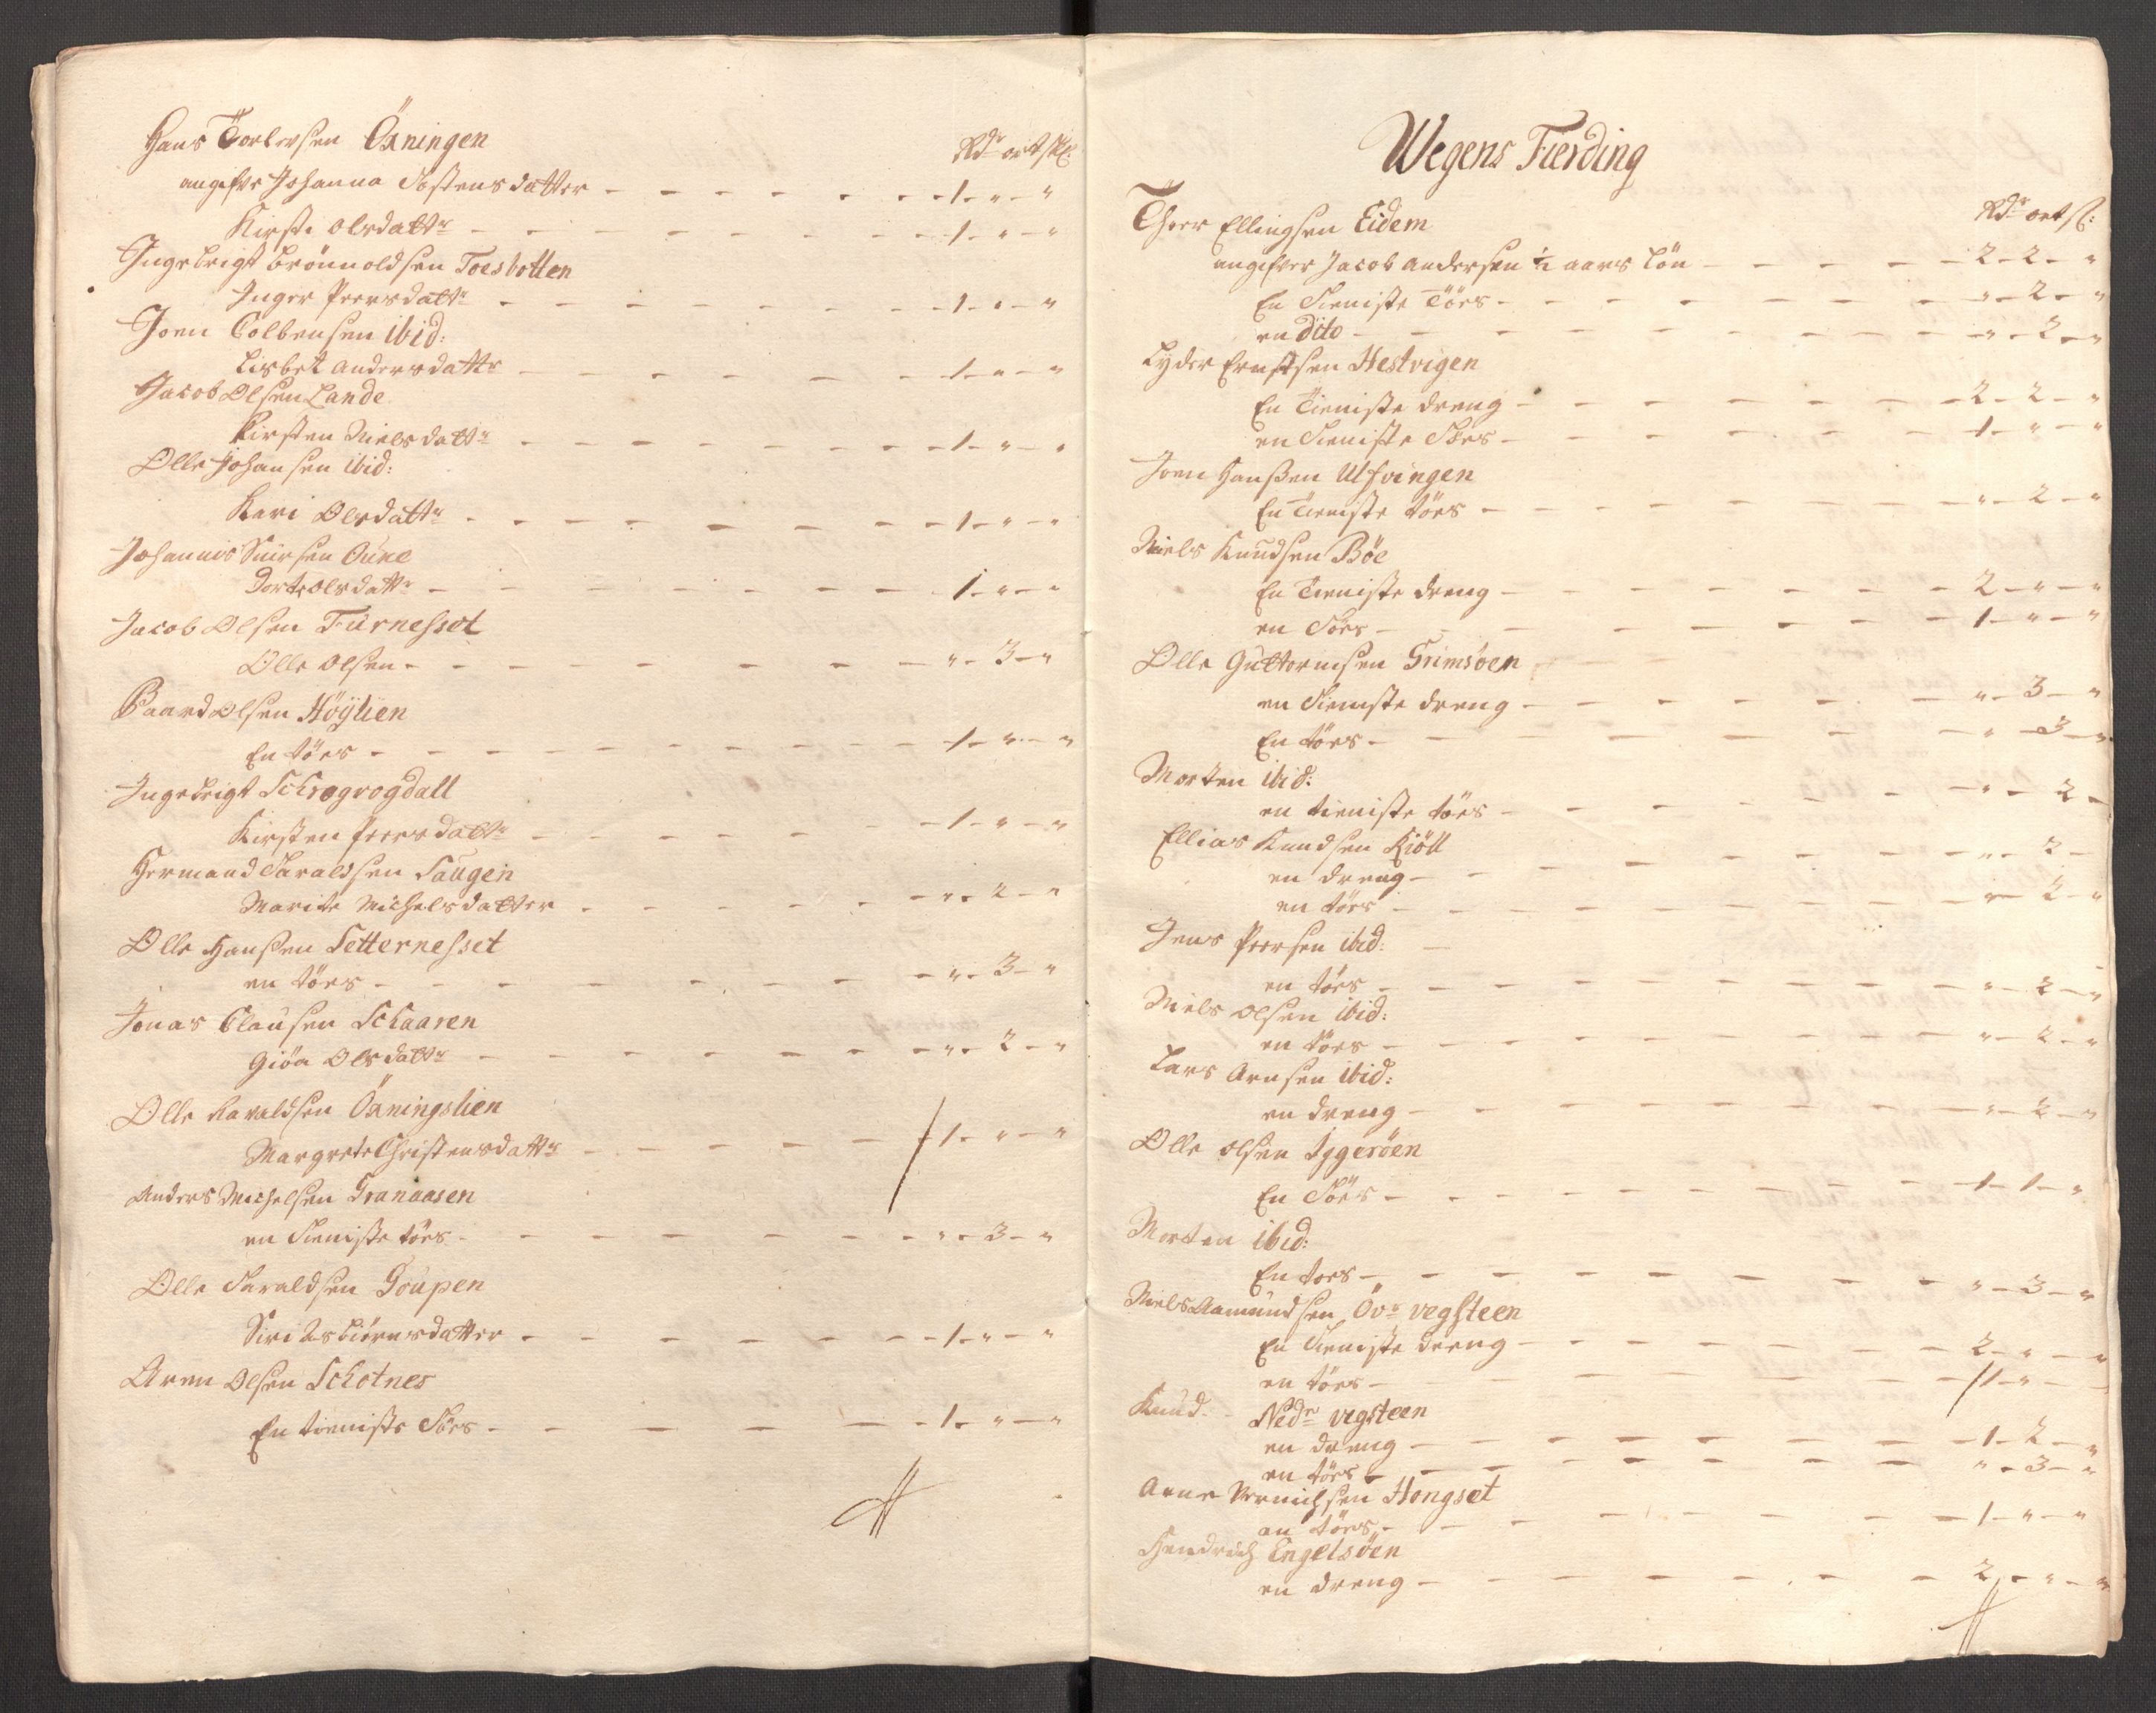 Hans Torlersen Öxningen
Rdr ort skl:
angifvr Johanna Tostensdatter - - - - - - - 1 - " - "
Kirste Olsdattr - - - - - - - 1 - " - "
Ingebrigt Brönnoldsen Toesbotten
Inger Peersdattr - - - - - - - 1 - " - "
Joen Colbensen ibid:
Lisbet Andersdattr - - - - - - - 1 - " - "
Jacob Olsen Lande
Kirsten Nielsdattr - - - - - - - 1 - " - "
Olle Johansen ibid:
Kari Olsdattr - - - - - - - 1 - " - "
Johannis Siursen Oune
Dorte Olsdattr - - - - - - - 1 - " - "
Jacob Olsen Furnesset
Olle Olsen - - - - - - - " - 3 - "
Baard Olsen Höylien
En töes - - - - - - - 1 - " - "
Ingebrigt Schrogvogdall
Kirsten Peersdattr - - - - - - - 1 - " - "
Hermand Taraldsen Saugen
Marite Michelsdatter - - - - - - " - 2 - "
Olle Hanssen Setternesset
en töes - - - - - - - " - 3 - "
Jonas Clausen Schaaren
Giöa Olsdattr - - - - - - - " - 2 - "
Olle Haraldsen Öxningslien
Margrete Christensdattr - - - - - 1 - " - "
Anders Michelsen Granaasen
en Tieniste töes - - - - - - " - 3 - "
Olle Taraldsen Goupen
Siri Asbiörnsdatter - - - - - - 1 - " - "
Aren Olsen Schotnes
En tieniste Töes - - - - - - 1 - " - "
Wegens Fierding
Rdr ort s:
Theer Ellingsen Eidem
angifver Jacob Andersen 1/2 aars Lön - - - - 2 - 2 - "
En Tieniste Töes - - - - - - " - 2 - "
en dito - - - - - - - " - 2 - "
Lyder Ernstsen Hestvigen
En Tieniste dreng - - - - - - 2 - 2 - "
en Tieniste Töes - - - - - - 1 - " - "
Joen Hanssen Ulfvingen
En Tieniste töes - - - - - - " - 2 - "
Niels Knudsen Böe
En Tieniste dreng - - - - - - 2 - " - "
en Töes - - - - - - - 1 - " - "
Olle Guttormsen Grimsöen
en Tieniste dreng - - - - - - " - 3 - "
En töes - - - - - - - " - 3 - "
Morten ibid:
en tieniste töes - - - - - - " - 2 -
Ellias Knudsen Kiöll
en dreng - - - - - - - " - 2 -
en töes - - - - - - - " - 2 - "
Jens Peersen ibid: -
en töes - - - - - - - " - 2 - "
Niels Olsen ibid:
en töes - - - - - - - " - 2 - "
Lars Arnsen ibid:
en dreng - - - - - - - " - 2 - "
Olle Olsen Iggeröen
En Töes - - - - - - - 1 - 1 - "
Morten ibid:
En toes - - - - - - - " - 3 - "
Niels Aamundsen Övr vegsteen
En Tieniste dreng - - - - - - 2 - " - "
en töes - - - - - - - 1 - " - -
Knud Nedr vegsteen
en dreng - - - - - - - 1 - 2 - "
en töes - - - - - - - " - 3 - "
Arne Vernichsen Hongset
en töes - - - - - - - 1 - " - "
Hendrich Engelsöen
en dreng - - - - - - - 2 - " - "